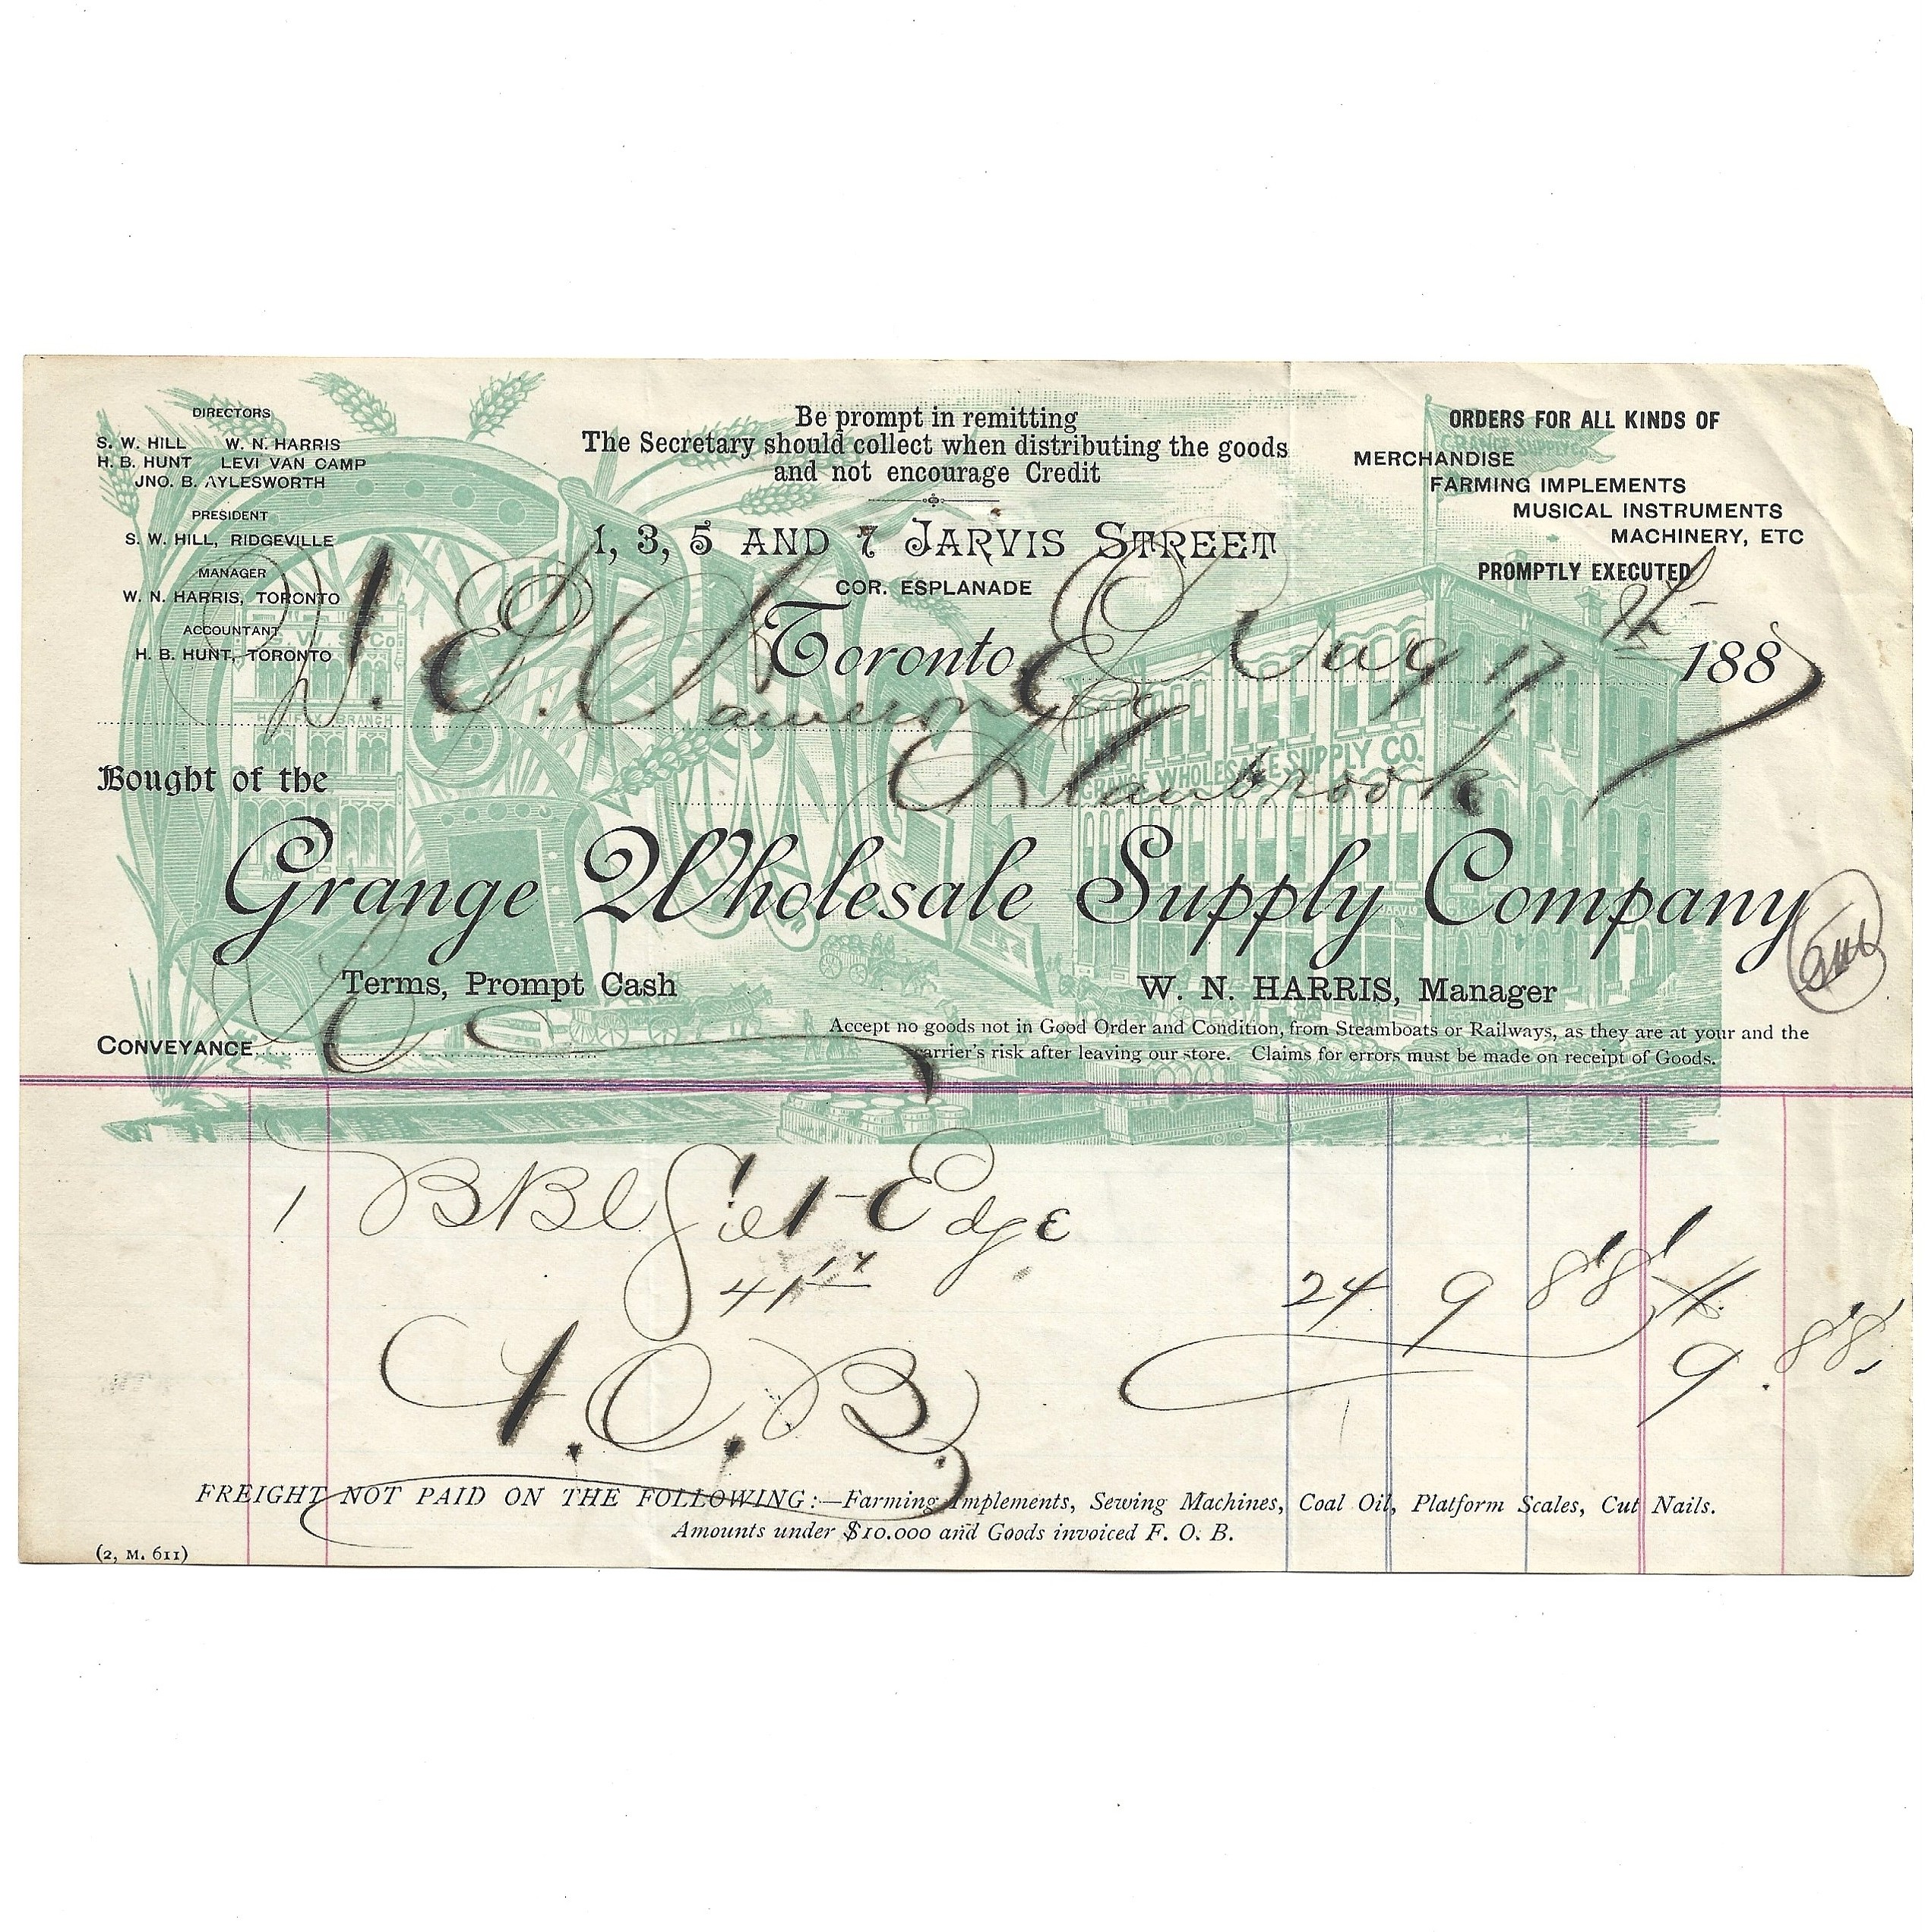 DIRECTORS
S. W. HILL W. N. HARRIS
H. B. HUNT LEVI VAN CAMP
JNO. B. AYLESWORTH
PRESIDENT
S. W. HILL, RIDGEVILLE
MANAGER
W. N. HARRIS, TORONTO
ACCOUNTANT
H. B. HUNT, TORONTO
Be prompt in remitting
The Secretary should collect when distributing the goods
and not encourage Credit
1, 3, 5 AND 7 JARVIS STREET
COR. ESPLANADE
ORDERS FOR ALL KINDS OF
MERCHANDISE
FARMING IMPLEMENTS
MUSICAL INSTRUMENTS
MACHINERY, ETC
PROMPTLY EXECUTED
GRANGE SUPPLY CO.
G. W. S. Co
HAMILTON BRANCH
GRANGE
Toronto Aug 17th 1887
Cameron Esq
Cranbrook
GRANGE WHOLESALE SUPPLY CO.
Bought of the
Grange Wholesale Supply Company
Terms, Prompt Cash
W. N. HARRIS, Manager
CONVEYANCE
Accept no goods not in Good Order and Condition, from Steamboats or Railways, as they are at your and the
carrier's risk after leaving our store. Claims for errors must be made on receipt of Goods.
1 BBl Gilt-Edge
41 17 24 9 88
9.88
F.O.B.
FREIGHT NOT PAID ON THE FOLLOWING:—Farming Implements, Sewing Machines, Coal Oil, Platform Scales, Cut Nails.
Amounts under $10.000 and Goods invoiced F. O. B.
(2, M. 611)